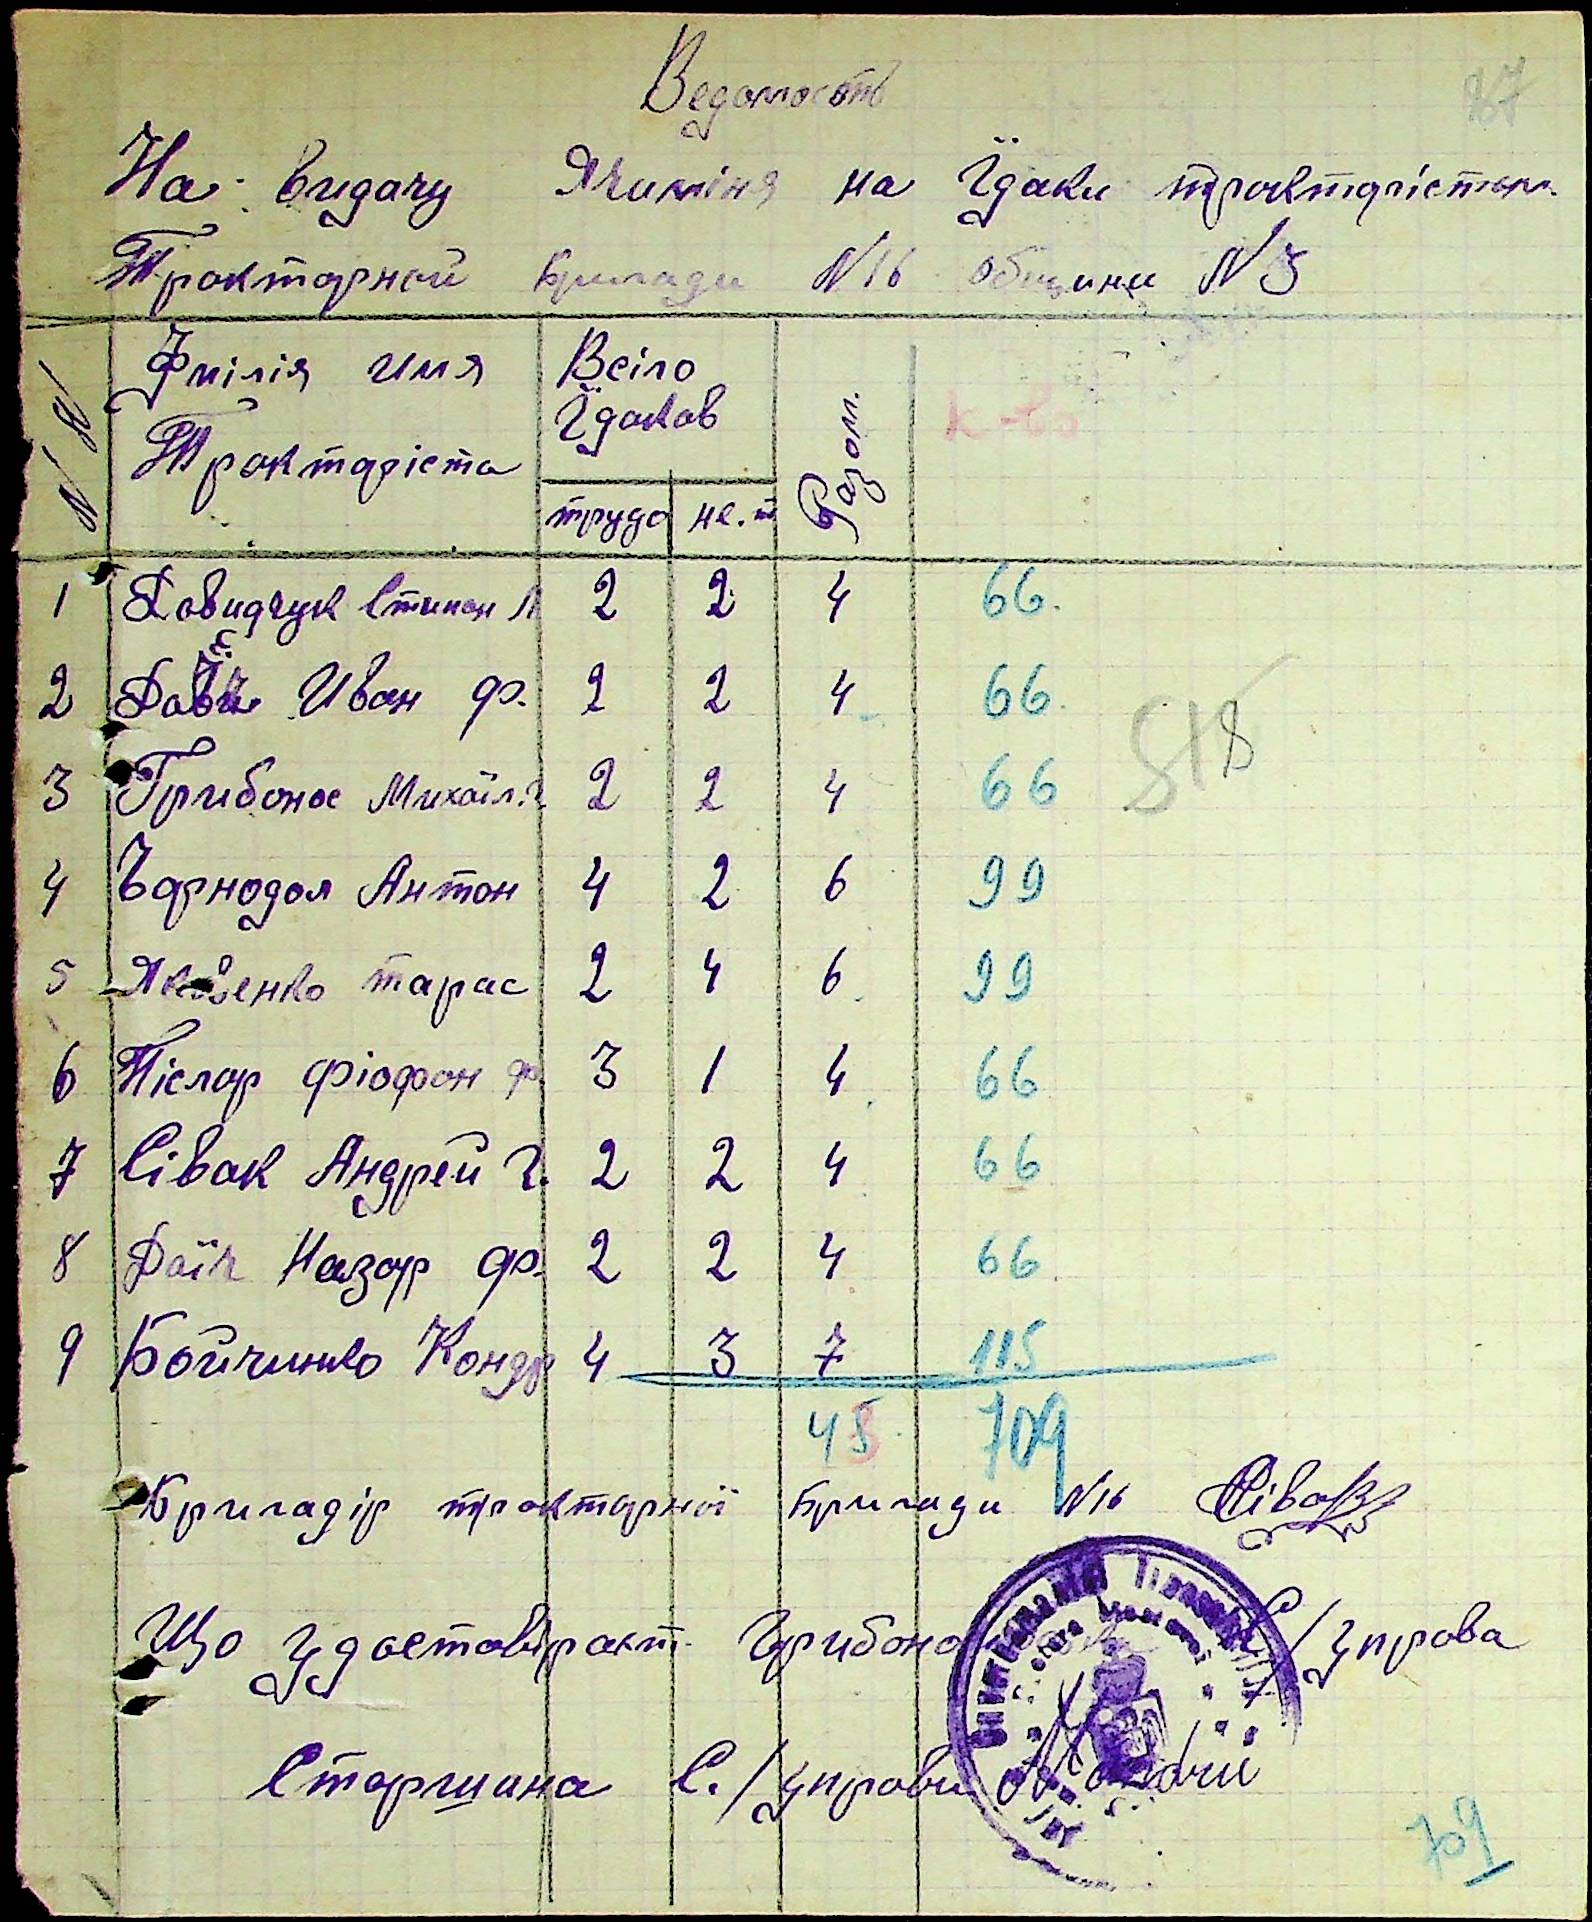 Ведомость
87
На видачу Ячиміня на Їдаки трактарістам
Трактарной Бригади N16 общини N3
N N
Фмілія имя Трактаріста
Всіго Їдаков
трудо не.т
Разом.
к-во
1 Давидчук Стипан Л 2 2 4 66.
2 Иван Ф. 2 2 4 66.
3 Грибонос Михаїл.Г 2 2 4 66
4 Чарнодол Антон 4 2 6 99
518
5 Яковенко тарас 2 4 6 99
6 Післар Фіофан Ф 3 1 4 66
7 Сівак Андрей Г. 2 2 4 66
8 Даїн Назар Ф. 2 2 4 66
9 Бойчинко Кондр 4 3 7 115
43 709
Бригадір трактарної Бригади N16 Сівак
Що удоставіраит Грибоно С/управа
Старшина С./управи
709